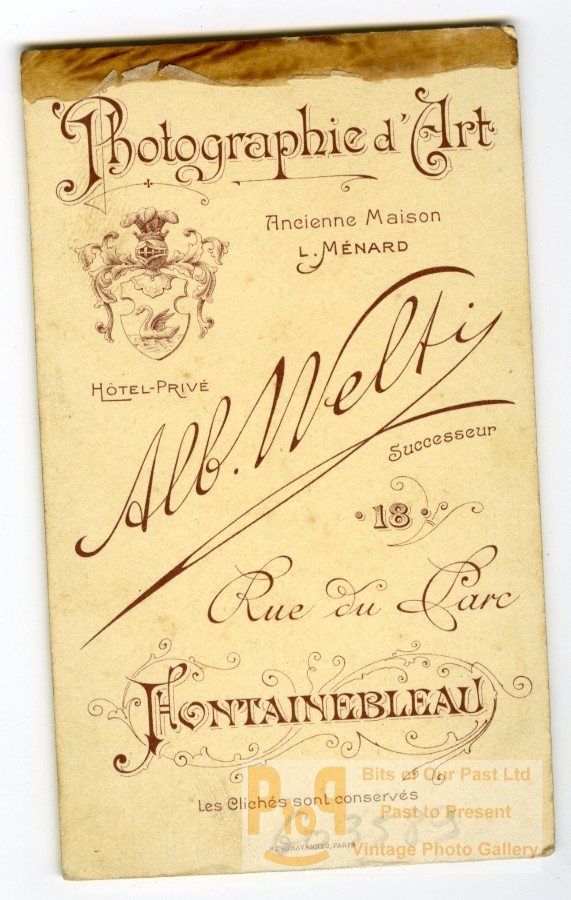 Photographie d'Art
Ancienne Maison
L. MÉNARD
HÔTEL-PRIVÉ
Alb. Welti
Successeur
18
Rue du Parc
FONTAINEBLEAU
Les Clichés sont conservés
PARIS
PtoP
Bits of Our Past Ltd
Past to Present
Vintage Photo Gallery